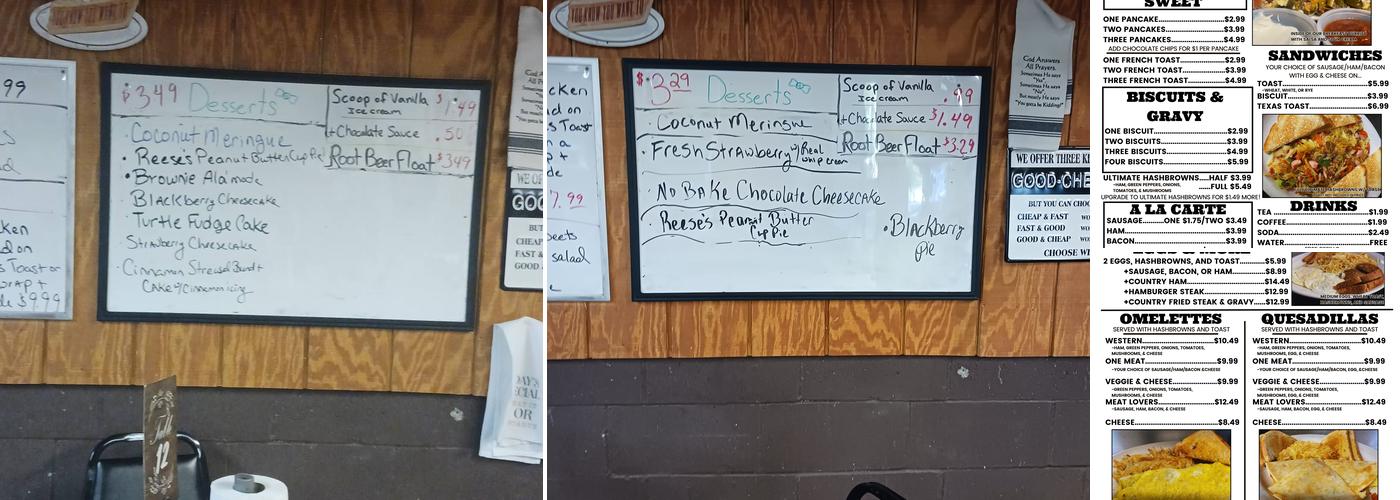 YOU KNOW YOU WANT TO
99
ad
ken
d on
s Toast or
rap +
de $9.99
$3.49 Desserts
Scoop of Vanilla
Ice cream
$1.49
+Chocolate Sauce .50
Root Beer Float $3.49
• Coconut Meringue
• Reese's Peanut Butter Cup Pie
• Brownie Ala'mode
• Blackberry Cheesecake
Turtle Fudge Cake
Strawberry Cheesecake
Cinnamon Streusel Bundt
Cake w/ Cinnamon icing
God Answers
All Prayers.
WE OF
GOO
BUT
CHEAP &
FAST &
GOOD &
DAY'S
ECIAL
OR
Table
12
YOU KNOW YOU WANT TO
cken
d on
s Toast
n a
p +
de
7.99
beets
salad
$3.29 Desserts
Scoop of Vanilla
Ice cream
+Chocolate Sauce $1.49
Root Beer Float $3.29
• Coconut Meringue
• Fresh Strawberry w/ Real
whip cream
• No Bake Chocolate Cheesecake
• Reese's Peanut Butter
Cup Pie
• Blackberry
Pie
God Answers
All Prayers.
Sometimes He says
"Yes",
Sometimes He says
"No",
But mostly He says
"You gotta be Kidding!"
WE OFFER THREE KI
GOOD-CHE
BUT YOU CAN CHOO
CHEAP & FAST WO
FAST & GOOD WO
GOOD & CHEAP WO
CHOOSE WI
SWEET
ONE PANCAKE $2.99
TWO PANCAKES $3.99
THREE PANCAKES $4.99
ADD CHOCOLATE CHIPS FOR $1 PER PANCAKE
ONE FRENCH TOAST $2.99
TWO FRENCH TOAST $3.99
THREE FRENCH TOAST $4.99
BISCUITS &
GRAVY
ONE BISCUIT $2.99
TWO BISCUITS $3.99
THREE BISCUITS $4.99
FOUR BISCUITS $5.99
ULTIMATE HASHBROWNS HALF $3.99
-HAM, GREEN PEPPERS, ONIONS,
TOMATOES, & MUSHROOMS
FULL $5.49
UPGRADE TO ULTIMATE HASHBROWNS FOR $1.49 MORE!
A LA CARTE
SAUSAGE ONE $1.75/TWO $3.49
HAM $3.99
BACON $3.99
INSIDE OF OUR BREAKFAST BURRITO
WITH SALSA AND SOUR CREAM
SANDWICHES
YOUR CHOICE OF SAUSAGE/HAM/BACON
WITH EGG & CHEESE ON...
TOAST $5.99
-WHEAT, WHITE, OR RYE
BISCUIT $3.99
TEXAS TOAST $6.99
DRINKS
TEA $1.99
COFFEE $1.99
SODA $2.49
WATER FREE
2 EGGS, HASHBROWNS, AND TOAST $5.99
+SAUSAGE, BACON, OR HAM $8.99
+COUNTRY HAM $14.49
+HAMBURGER STEAK $12.99
+COUNTRY FRIED STEAK & GRAVY $12.99
OMELETTES
SERVED WITH HASHBROWNS AND TOAST
WESTERN $10.49
-HAM, GREEN PEPPERS, ONIONS, TOMATOES,
MUSHROOMS, & CHEESE
ONE MEAT $9.99
-YOUR CHOICE OF SAUSAGE/HAM/BACON &CHEESE
VEGGIE & CHEESE $9.99
-GREEN PEPPERS, ONIONS, TOMATOES,
MUSHROOMS, & CHEESE
MEAT LOVERS $12.49
-SAUSAGE, HAM, BACON, & CHEESE
CHEESE $8.49
QUESADILLAS
SERVED WITH HASHBROWNS AND TOAST
WESTERN $10.49
-HAM, GREEN PEPPERS, ONIONS, TOMATOES,
MUSHROOMS, EGG, & CHEESE
ONE MEAT $9.99
-YOUR CHOICE OF SAUSAGE/HAM/BACON, EGG, &CHEESE
VEGGIE & CHEESE $9.99
-GREEN PEPPERS, ONIONS, TOMATOES,
MUSHROOMS, EGG, & CHEESE
MEAT LOVERS $12.49
-SAUSAGE, HAM, BACON, EGG, & CHEESE
CHEESE $8.49